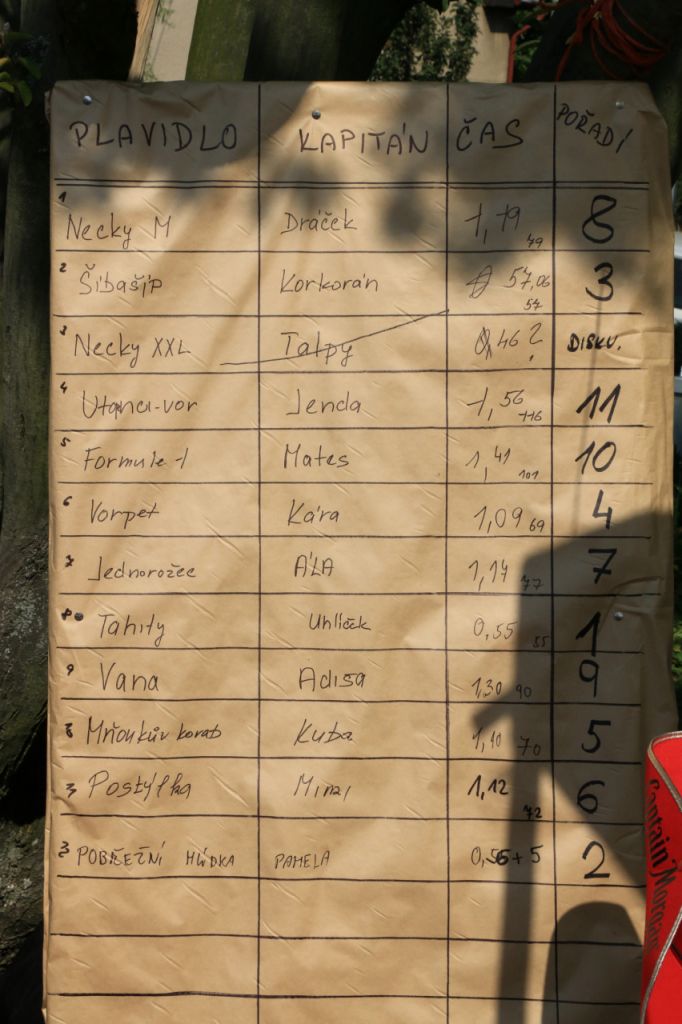 PLAVIDLO KAPITÁN ČAS POŘADÍ
1 Necky M Dráček 1,19 79 8
2 Šibašip Korkorán 57,06 57 3
3 Necky XXL Talpy 0,46? DISKV.
4 Utonci-vor Jenda 1,56 116 11
5 Formule-1 Mates 1,41 101 10
6 Vorpet Kára 1,09 69 4
7 Jednorožec ÁLA 1,17 77 7
8 Tahity Uhlíček 0,55 55 1
9 Vana Adisa 1,30 90 9
Mňoukův korab Kuba 1,10 70 5
Postýlka Minzi 1,12 72 6
POBŘEŽNÍ HLÍDKA PAMELA 0,56+5 2
Captain Morgan